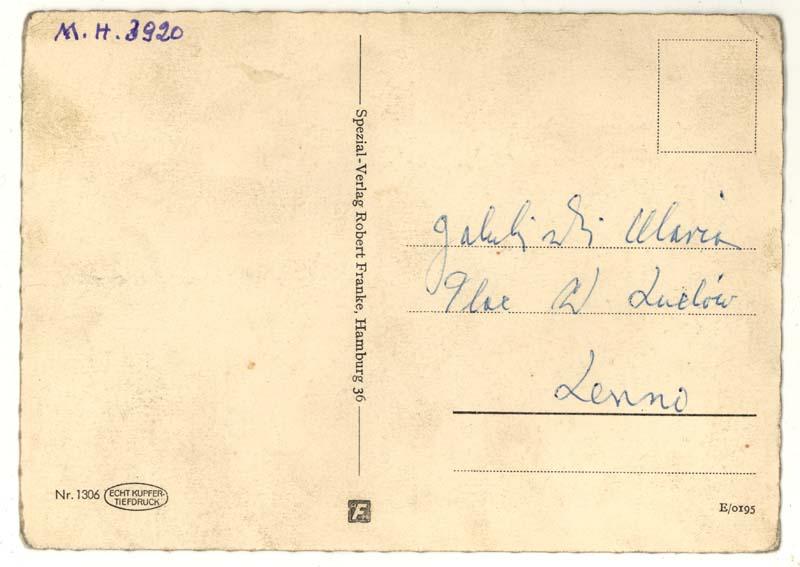 M. H. 3920
Spezial-Verlag Robert Franke, Hamburg 36
Maria
Plac W Ludów
Lenno
Nr. 1306
ECHT KUPFER-
TIEFDRUCK
F
E/0195